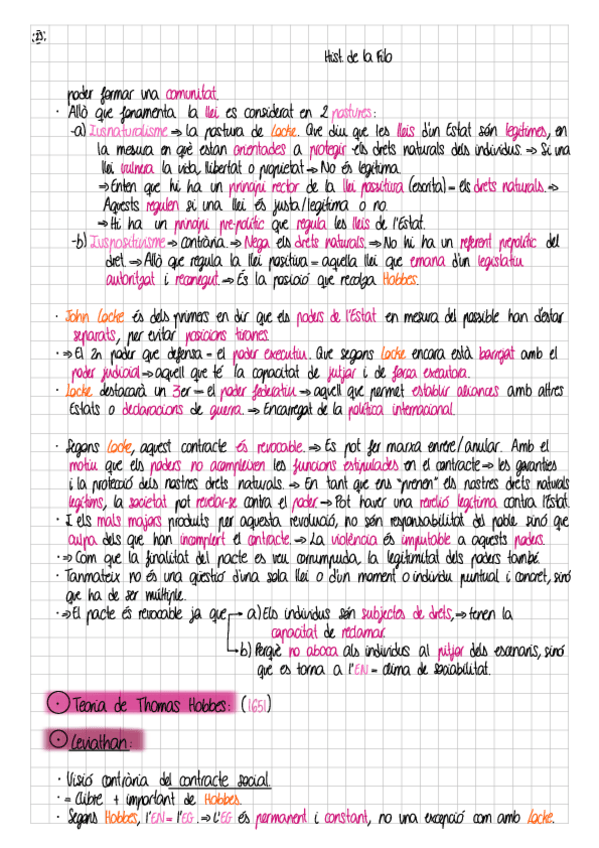 Hist. de la Filo
poder formar una comunitat.
· Allò que fonamenta la llei es considerat en 2 postures:
-a) Iusnaturalisme ⇒ la postura de Locke. Que diu que les lleis d'un Estat són legítimes, en
la mesura en què estan orientades a protegir els drets naturals dels individus. ⇒ Si una
llei vulnera la vida, llibertat o propietat → No és legítima.
⇒ Enten que hi ha un principi rector de la llei positiva (escrita) = els drets naturals. ⇒
Aquests regulen si una llei és justa/legítima o no.
⇒ Hi ha un principi pre-polític que regula les lleis de l'Estat.
-b) Iuspositivisme ⇒ contrària. ⇒ Nega els drets naturals. ⇒ No hi ha un referent prepolític del
dret. ⇒ Allò que regula la llei positiva = aquella llei que emana d'un legislatiu
autoritzat i reconegut. ⇒ És la posició que recolza Hobbes.
· John Locke és dels primers en dir que els poders de l'Estat en mesura del possible han d'estar
separats, per evitar posicions tiranes.
· ⇒ El 2n poder que defensa = el poder executiu. Que segons Locke encara està barrejat amb el
poder judicial → aquell que té la capacitat de jutjar i de força executora.
· Locke destacarà un 3er = el poder federatiu → aquell que permet establir aliances amb altres
Estats o declaracions de guerra. ⇒ Encarregat de la política internacional.
· Segons Locke, aquest contracte és revocable. ⇒ Es pot fer marxa enrere/anular. Amb el
motiu que els poders no acompleixen les funcions estipulades en el contracte ⇒ les garanties
i la protecció dels nostres drets naturals. ⇒ En tant que ens "prenen" els nostres drets naturals
legítims, la societat pot revelar-se contra el poder. ⇒ Pot haver una revelió legítima contra l'Estat.
· I els mals majors produïts per aquesta revolució, no són responsabilitat del poble sinó que
culpa dels que han incomplert el contracte. ⇒ La violència és imputable a aquests poders.
· ⇒ Com que la finalitat del pacte es veu corrumpuda, la legitimitat dels poders també.
· Tanmateix no és una qüestió d'una sola llei o d'un moment o individu puntual i concret, sinó
que ha de ser múltiple.
· ⇒ El pacte és revocable ja que → a) Els individus són subjectes de drets, ⇒ tenen la
capacitat de reclamar.
b) Perquè no aboca als individus al pitjor dels escenaris, sinó
que es torna a l'EN = clima de sociabilitat.
Teoria de Thomas Hobbes: (1651)
Leviathan:
· Visió contrària del contracte social.
· = Llibre + important de Hobbes.
· Segons Hobbes, l'EN = l'EG. ⇒ L'EG és permanent i constant, no una excepció com amb Locke.